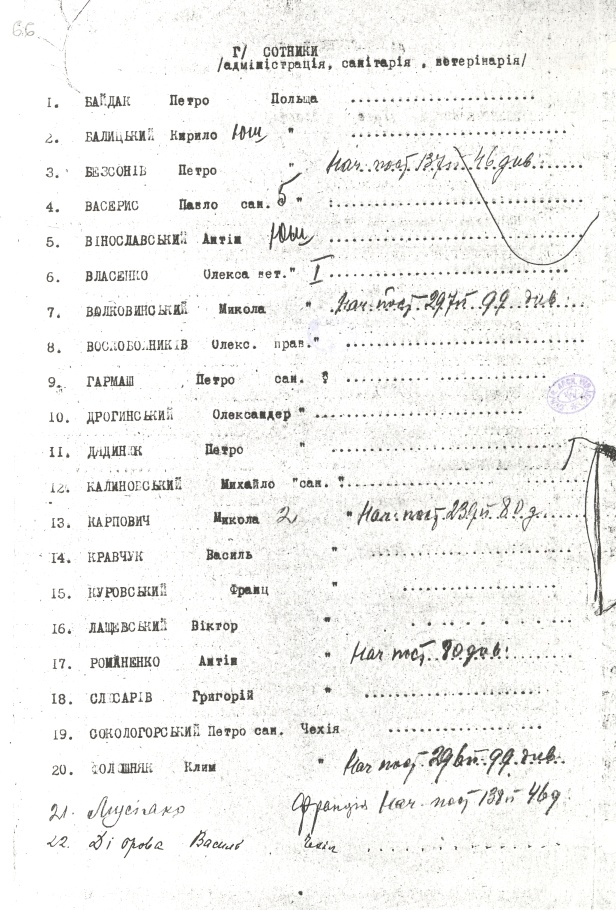 66
Г/ СОТНИКИ
/адміністрація, санітарія , ветерінарія/
1. БАЙДАК Петро Польща ........................
2. БАЛИЦЬКИЙ Кирило Юш " ........................
3. БЕЗСОНІВ Петро " Нач. пост. 137 п 46 див.
4. ВАСЕРИС Павло сан. 5 " ........................
5. ВІНОСЛАВСЬКИЙ Антін Юш ........................
6. ВЛАСЕНКО Олекса вет." I ........................
7. ВОЛКОВИНСЬКИЙ Микола " Нач. пост. 297 п. 99 див.
8. ВОСКОБОЙНИКІВ Олекс. прав." ........................
9. ГАРМАШ Петро сан. " ........................
10. ДРОГИНСЬКИЙ Олександер " ........................
11. ДЯДИНЯК Петро " ........................
12. КАЛИНОВСЬКИЙ Михайло "сан. " ........................
13. КАРПОВИЧ Микола 2 " Нач. пост. 239 п 80 д.
14. КРАВЧУК Василь " ........................
15. КУРОВСЬКИЙ Франц " ........................
16. ЛАЩЕВСЬКИЙ Віктор " ........................
17. РОМАНЕНКО Антін " Нач пост. 80 див.
18. СЛЮСАРІВ Григорій " ........................
19. СОКОЛОГОРСЬКИЙ Петро сан. Чехія ........................
20. Клим " Нач пост. 296 п. 99 див.
21. Франція Нач. пост 138 п 46 д
22. Діброва Василь Чехія ........................